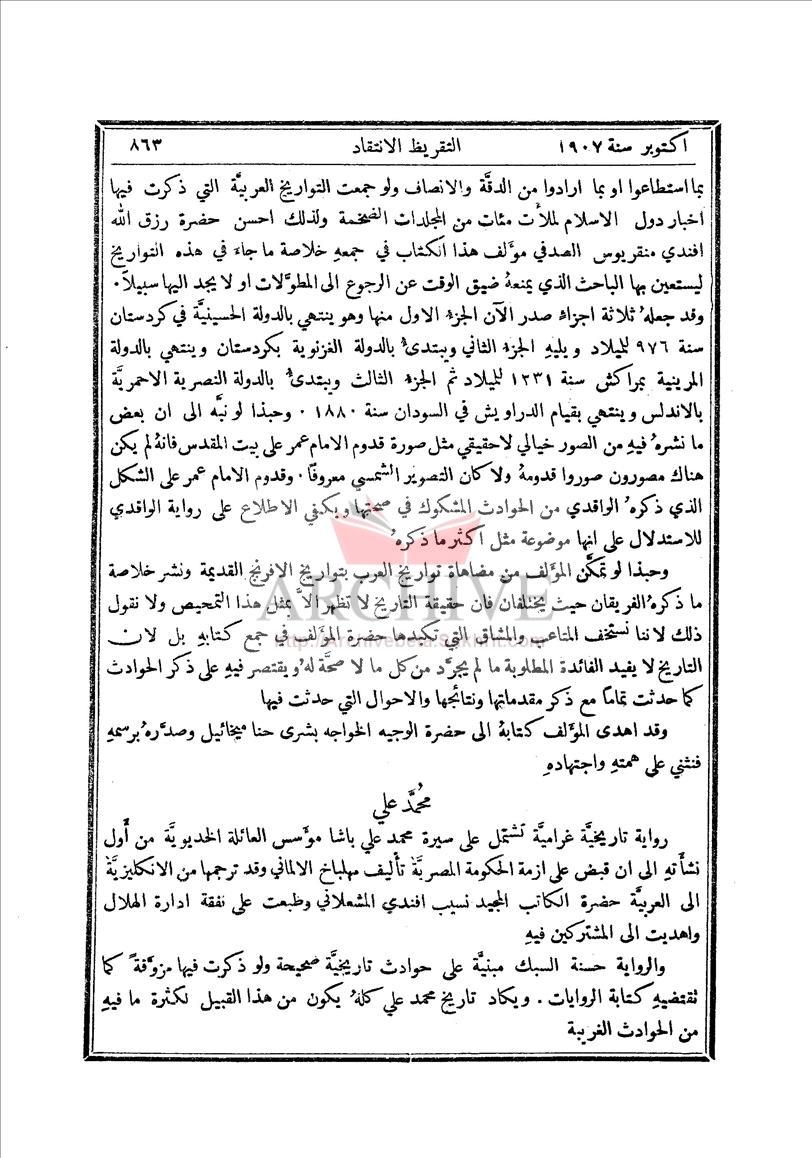 اكتوبر سنة ١٩٠٧ التقريظ الانتقاد ٨٦٣
بما استطاعوا او بما ارادوا من الدقَّة والانصاف ولو جمعت التواريخ العربيَّة التي ذكرت فيها
اخبار دول الاسلام لملأت مئات من المجلدات الضخمة ولذلك احسن حضرة رزق الله
افندي منقريوس الصدفي مؤَلف هذا الكتاب في جمعهِ خلاصة ما جاءَ في هذه التواريخ
ليستعين بها الباحث الذي يمنعهُ ضيق الوقت عن الرجوع الى المطوَّلات او لا يجد اليها سبيلاً .
وقد جعلهُ ثلاثة اجزاء صدر الآن الجزء الاول منها وهو ينتهي بالدولة الحسينيَّة في كردستان
سنة ٩٧٦ للميلاد ويليهِ الجزء الثاني ويبتدىُ بالدولة الغزنوية بكردستان وينتهي بالدولة
المرينية بمراكش سنة ١٢٣١ للميلاد ثم الجزء الثالث ويبتدىُ بالدولة النصرية الاحمريَّة
بالاندلس وينتهي بقيام الدراويش في السودان سنة ١٨٨٠ . وحبذا لو نبَّه الى ان بعض
ما نشرهُ فيهِ من الصور خيالي لا حقيقي مثل صورة قدوم الامام عمر على بيت المقدس فانهُ لم يكن
هناك مصورون صوروا قدومهُ ولا كان التصوير الشمسي معروفًا . وقدوم الامام عمر على الشكل
الذي ذكرهُ الواقدي من الحوادث المشكوك في صحتها ويكفي الاطلاع على رواية الواقدي
للاستدلال على انها موضوعة مثل اكثر ما ذكرهُ
وحبذا لو تمكَّن المؤَلف من مضاهاة تواريخ العرب بتواريخ الافرنج القديمة ونشر خلاصة
ما ذكرهُ الفريقان حيث يختلفان فان حقيقة التاريخ لا تظهر الاَّ بمثل هذا التمحيص ولا نقول
ذلك لاننا نستخف المتاعب والمشاق التي تكبدها حضرة المؤَلف في جمع كتابهِ بل لان
التاريخ لا يفيد الفائدة المطلوبة ما لم يجرَّد من كل ما لا صحَّة لهُ ويقتصر فيهِ على ذكر الحوادث
كما حدثت تمامًا مع ذكر مقدماتها ونتائجها والاحوال التي حدثت فيها
وقد اهدى المؤَلف كتابهُ الى حضرة الوجيه الخواجه بشرى حنا ميخائيل وصدَّرهُ برسمهِ
فنثني على همتهِ واجتهادهِ
محمَّد علي
رواية تاريخيَّة غراميَّة تشتمل على سيرة محمد علي باشا مؤَسس العائلة الخديوية من أَول
نشأَتهِ الى ان قبض على ازمة الحكومة المصريَّة تأْليف مهلباخ الالماني وقد ترجمها من الانكليزيَّة
الى العربيَّة حضرة الكاتب المجيد نسيب افندي المشعلاني وطبعت على نفقة ادارة الهلال
واهديت الى المشتركين فيهِ
والرواية حسنة السبك مبنيَّة على حوادث تاريخيَّة صحيحة ولو ذكرت فيها مزوَّقةً كما
تقتضيهِ كتابة الروايات . ويكاد تاريخ محمد علي كلهُ يكون من هذا القبيل لكثرة ما فيهِ
من الحوادث الغريبة
ARCHIVE
http://Archivebeta.Sakhrit.com